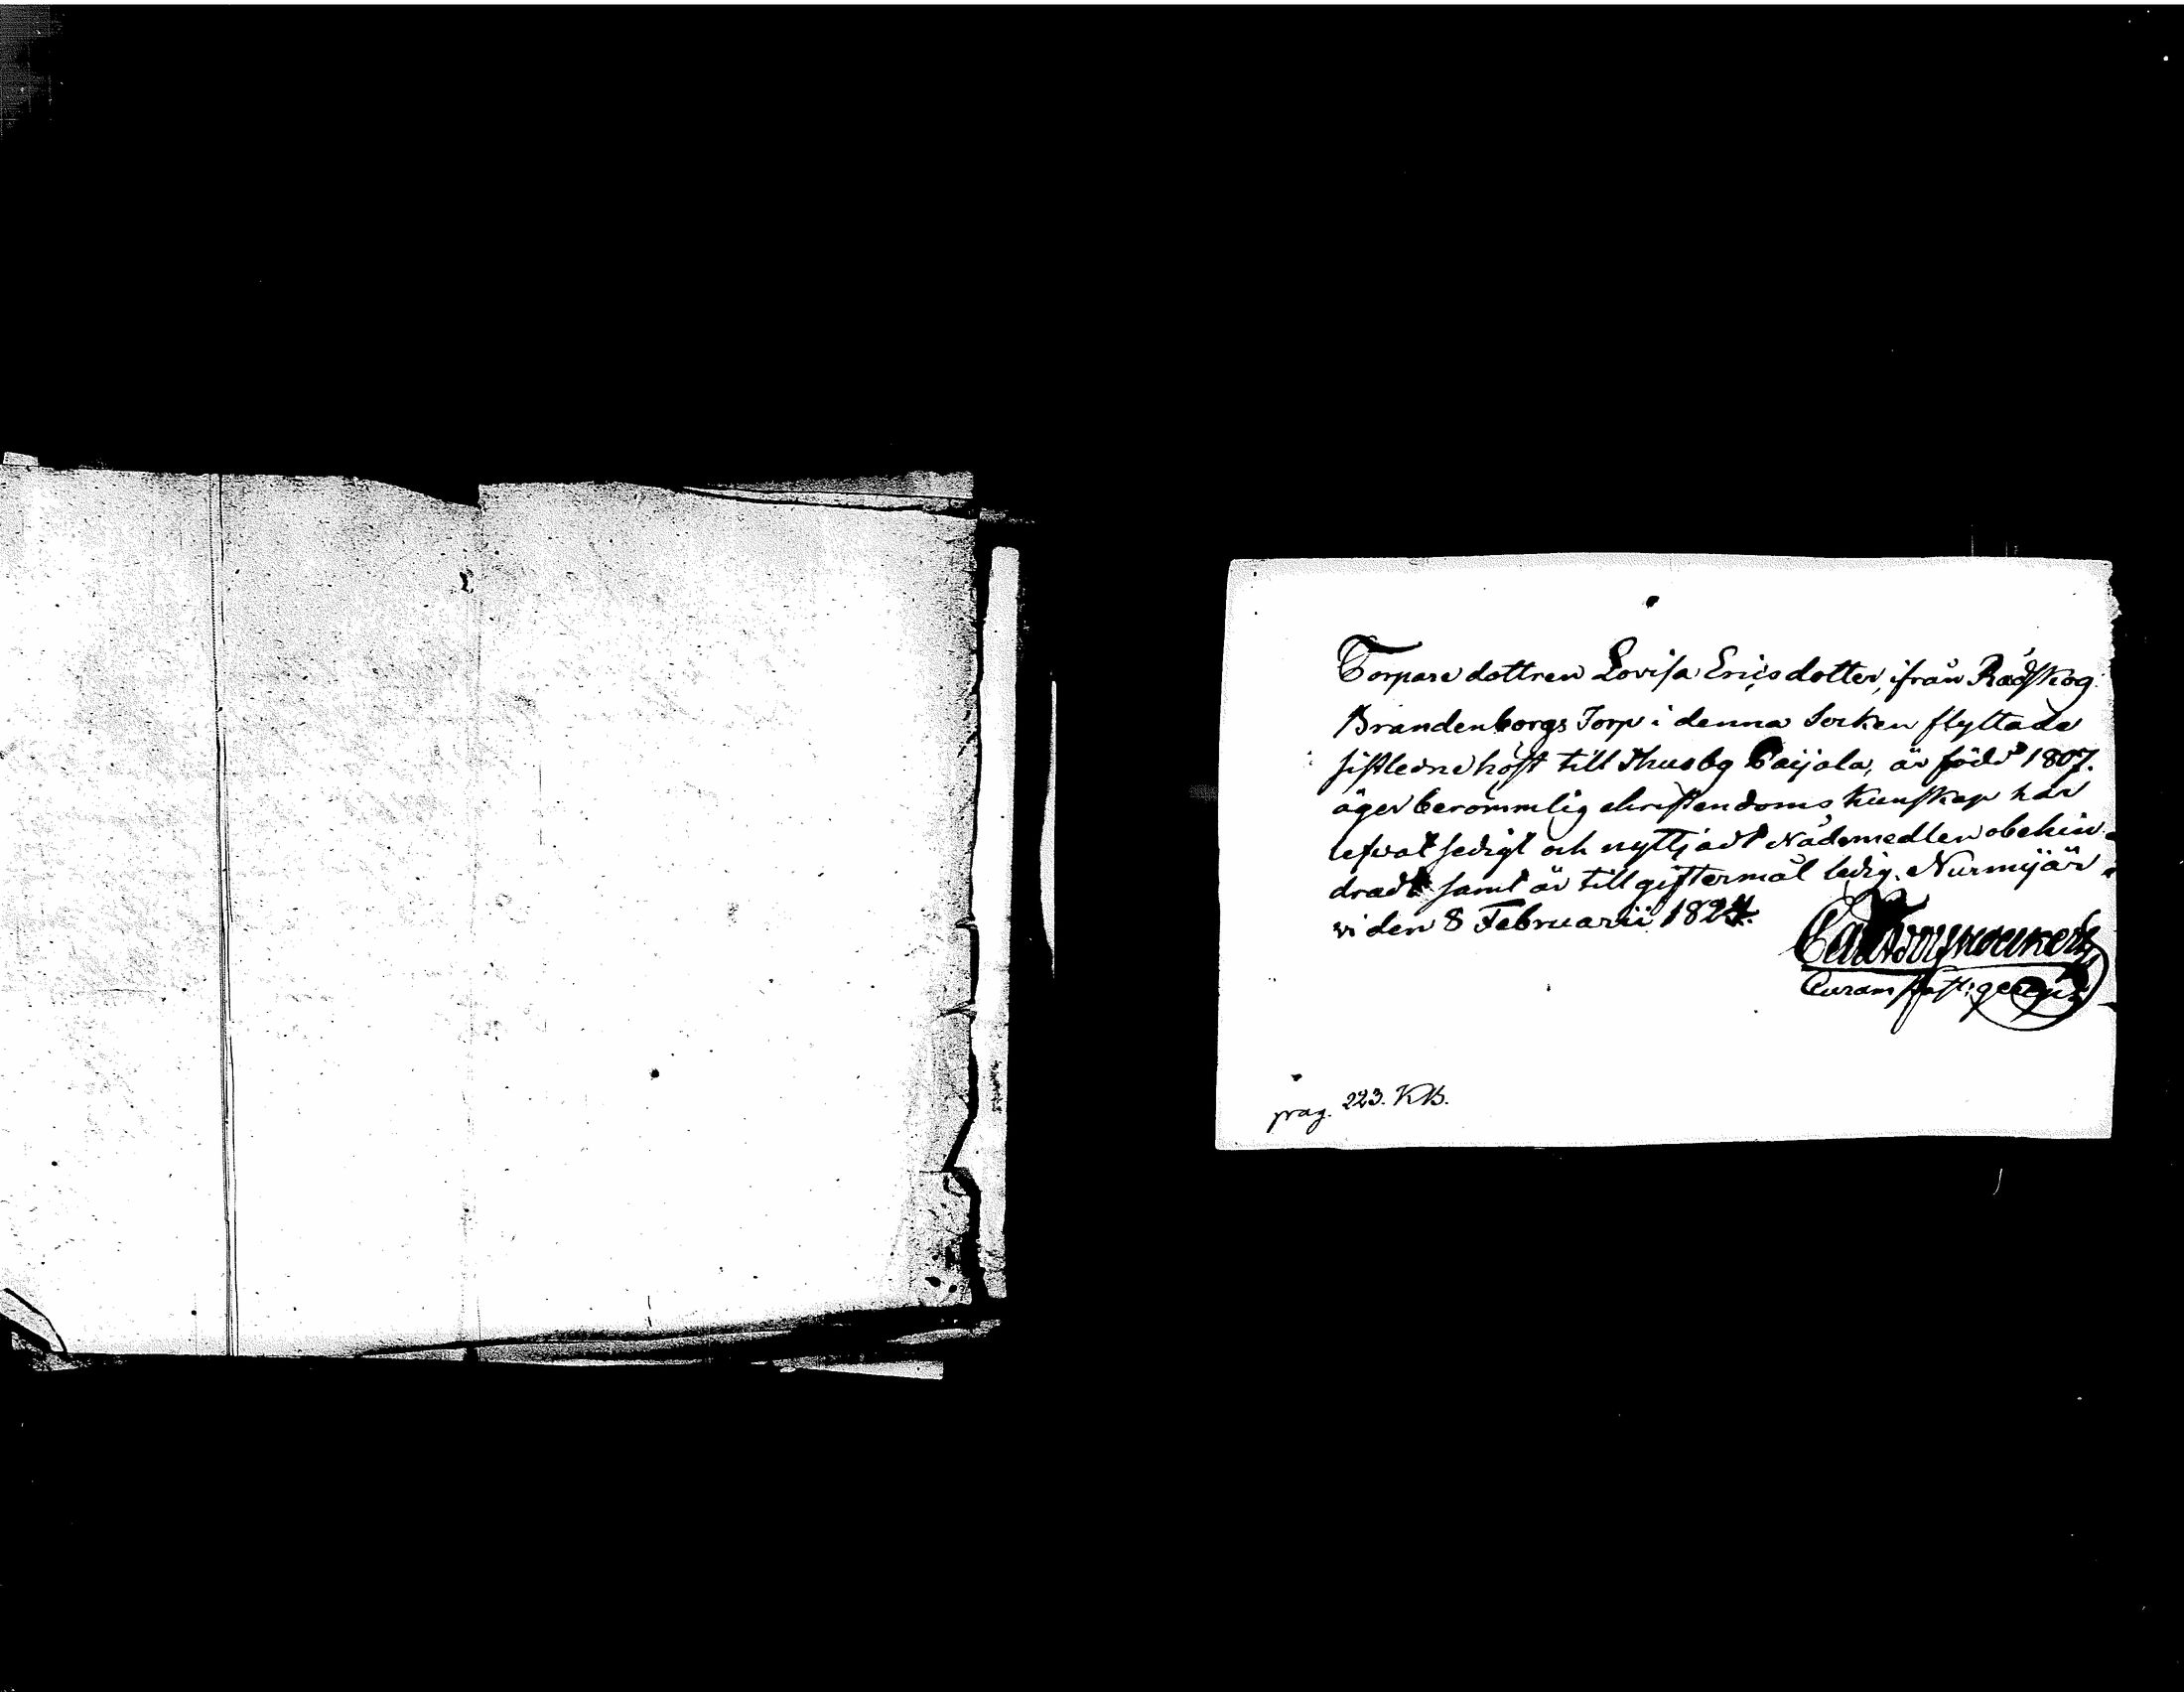 Torpare dottren Lovisa Ericsdotter, ifrån Rådskog
Brandenborgs Torp i denna Socken flyttade
sistledne höst till Thusby Paijala, är född 1807.
äger berömmlig christendoms kunskap har
lefvat sedigt och nyttjadt Nådemedlen obehin
dradt samt är till giftermål ledig. Nurmijär
vi den 8 Februarii 1824.
Curam past: gerens
pag. 223. KB.